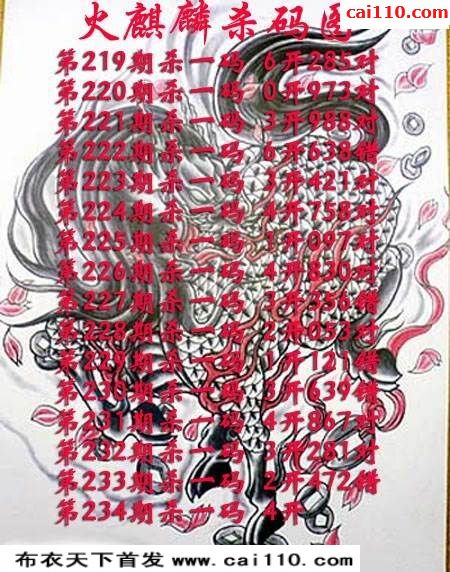 cai110.com
火麒麟杀码图
第219期杀一码 6开285对
第220期杀一码 0开973对
第221期杀一码 3开988对
第222期杀一码 6开638错
第223期杀一码 3开421对
第224期杀一码 4开758对
第225期杀一码 1开097对
第226期杀一码 4开830对
第227期杀一码 3开356错
第228期杀一码 2开053对
第229期杀一码 1开121错
第230期杀一码 3开639错
第231期杀一码 4开867对
第232期杀一码 3开281对
第233期杀一码 2开472错
第234期杀一码 4开
布衣天下首发 www.cai110.com